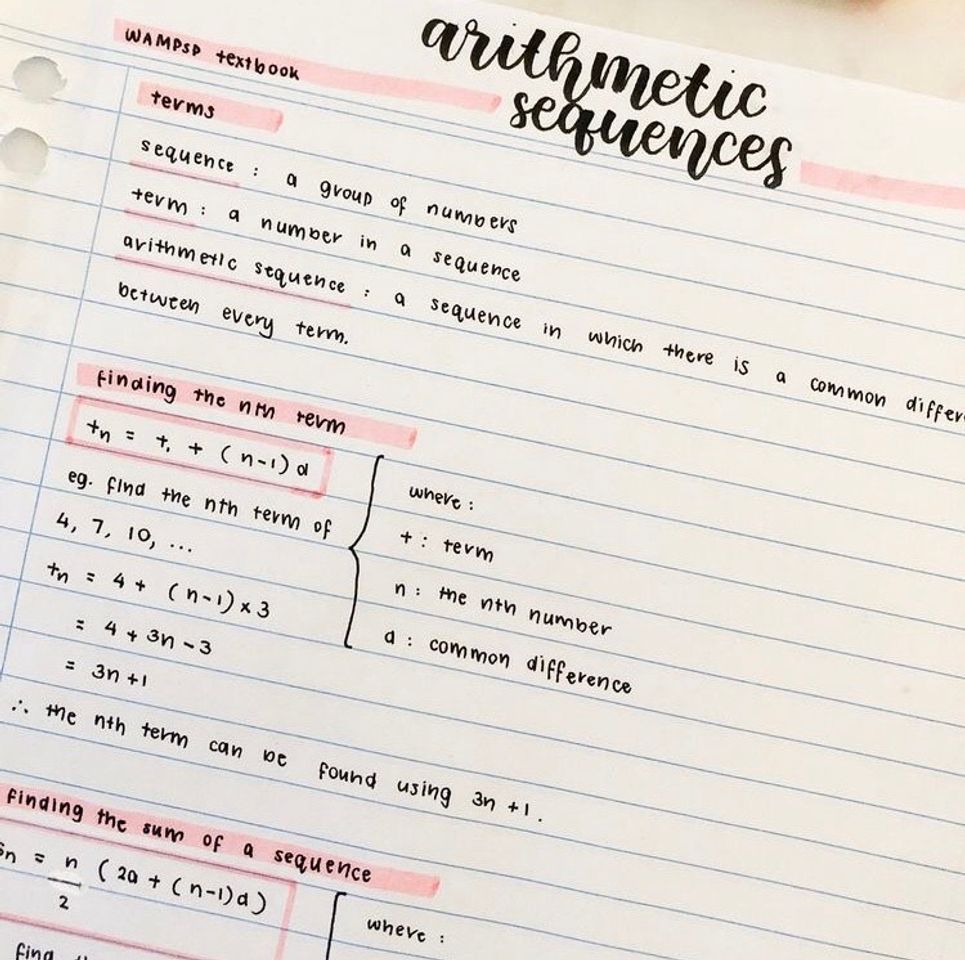 arithmetic
sequences
WAMPSP textbook
terms
sequence : a group of numbers
term : a number in a sequence
arithmetic sequence : a sequence in which there is a common differ
between every term.
finding the nth term
tn = t₁ + (n-1)d
eg. find the nth term of
4, 7, 10, ...
tn = 4 + (n-1) x 3
= 4 + 3n - 3
= 3n + 1
∴ the nth term can be found using 3n + 1.
where :
t : term
n : the nth number
d : common difference
finding the sum of a sequence
Sn = n/2 (2a + (n-1)d)
where :
find